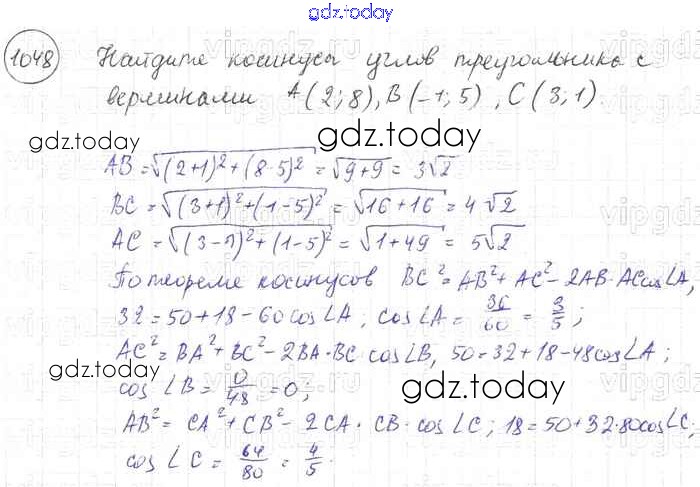 gdz.today
1048 Найдите косинусы углов треугольника с
вершинами A(2; 8), B(-1; 5), C(3; 1).
gdz.today
gdz.today
AB = √(2+1)² + (8-5)² = √9+9 = 3√2
BC = √(3+1)² + (1-5)² = √16+16 = 4√2
AC = √(3-1)² + (1-5)² = √1+49 = 5√2
По теореме косинусов BC² = AB² + AC² - 2AB·AC cos∠A,
32 = 50+18-60cos∠A; cos∠A = 36/60 = 3/5;
AC² = BA² + BC² - 2BA·BC cos∠B, 50 = 32+18-48cos∠A;
cos∠B = 0/48 = 0;
gdz.today
gdz.today
AB² = CA² + CB² - 2CA·CB·cos∠C; 18 = 50+32·80cos∠C,
cos∠C = 64/80 = 4/5.